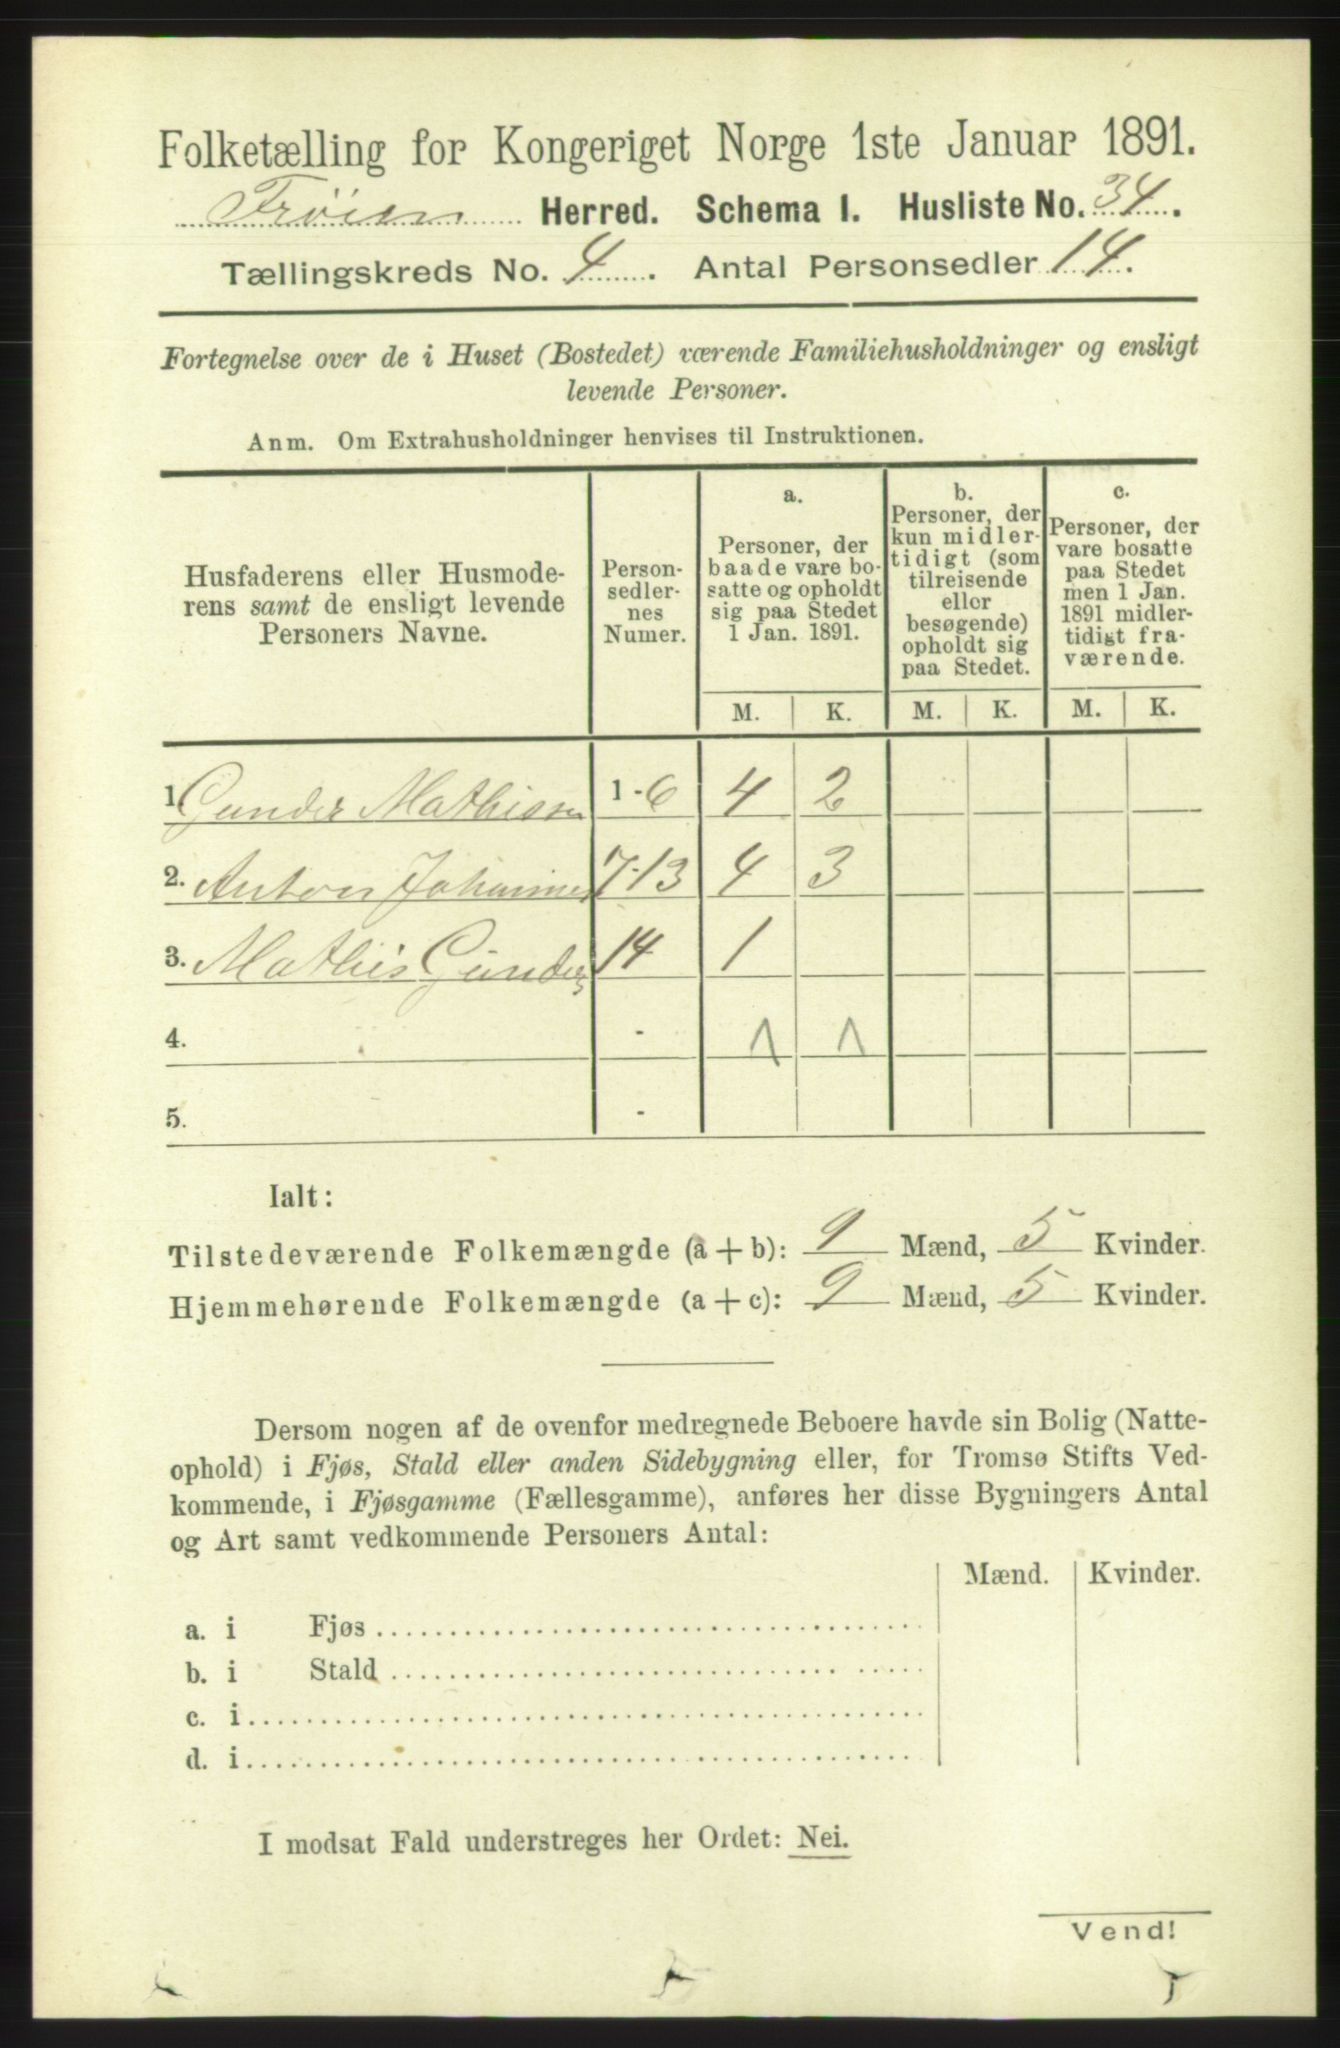 Folketælling for Kongeriget Norge 1ste Januar 1891.
Frøien Herred. Schema I. Husliste No. 34.
Tællingskreds No. 4. Antal Personsedler 14.
Fortegnelse over de i Huset (Bostedet) værende Familiehusholdninger og ensligt
levende Personer.
Anm. Om Extrahusholdninger henvises til Instruktionen.
Husfaderens eller Husmode-
rens samt de ensligt levende
Personers Navne.
Person-
sedler-
nes
Numer.
a.
Personer, der
baade vare bo-
satte og opholdt
sig paa Stedet
1 Jan. 1891.
b.
Personer, der
kun midler-
tidigt (som
tilreisende
eller
besøgende)
opholdt sig
paa Stedet.
c.
Personer, der
vare bosatte
paa Stedet
men 1 Jan.
1891 midler-
tidigt fra-
værende.
M. K. M. K. M. K.
1. Gunder Mathissen 1-6 4 2
2. Anton Johannes 7-13 4 3
3. Mathis Gunders 14 1
4. -
5. -
Ialt:
Tilstedeværende Folkemængde (a + b): 9 Mænd, 5 Kvinder.
Hjemmehørende Folkemængde (a + c): 9 Mænd, 5 Kvinder.
Dersom nogen af de ovenfor medregnede Beboere havde sin Bolig (Natte-
ophold) i Fjøs, Stald eller anden Sidebygning eller, for Tromsø Stifts Ved-
kommende, i Fjøsgamme (Fællesgamme), anføres her disse Bygningers Antal
og Art samt vedkommende Personers Antal:
Mænd. Kvinder.
a. i Fjøs
b. i Stald
c. i
d. i
I modsat Fald understreges her Ordet: Nei.
Vend!